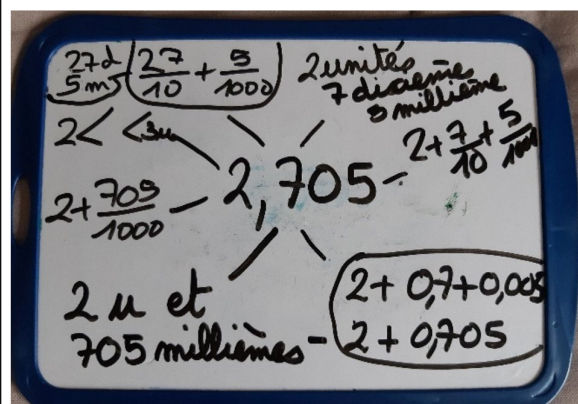 27d
5m
27/10 + 5/1000
2 unités
7 dixièmes
5 millième
2< <3u
2 + 7/10 + 5/1000
2,705
2 + 705/1000
2 u et
705 millièmes
2 + 0,7 + 0,005
2 + 0,705